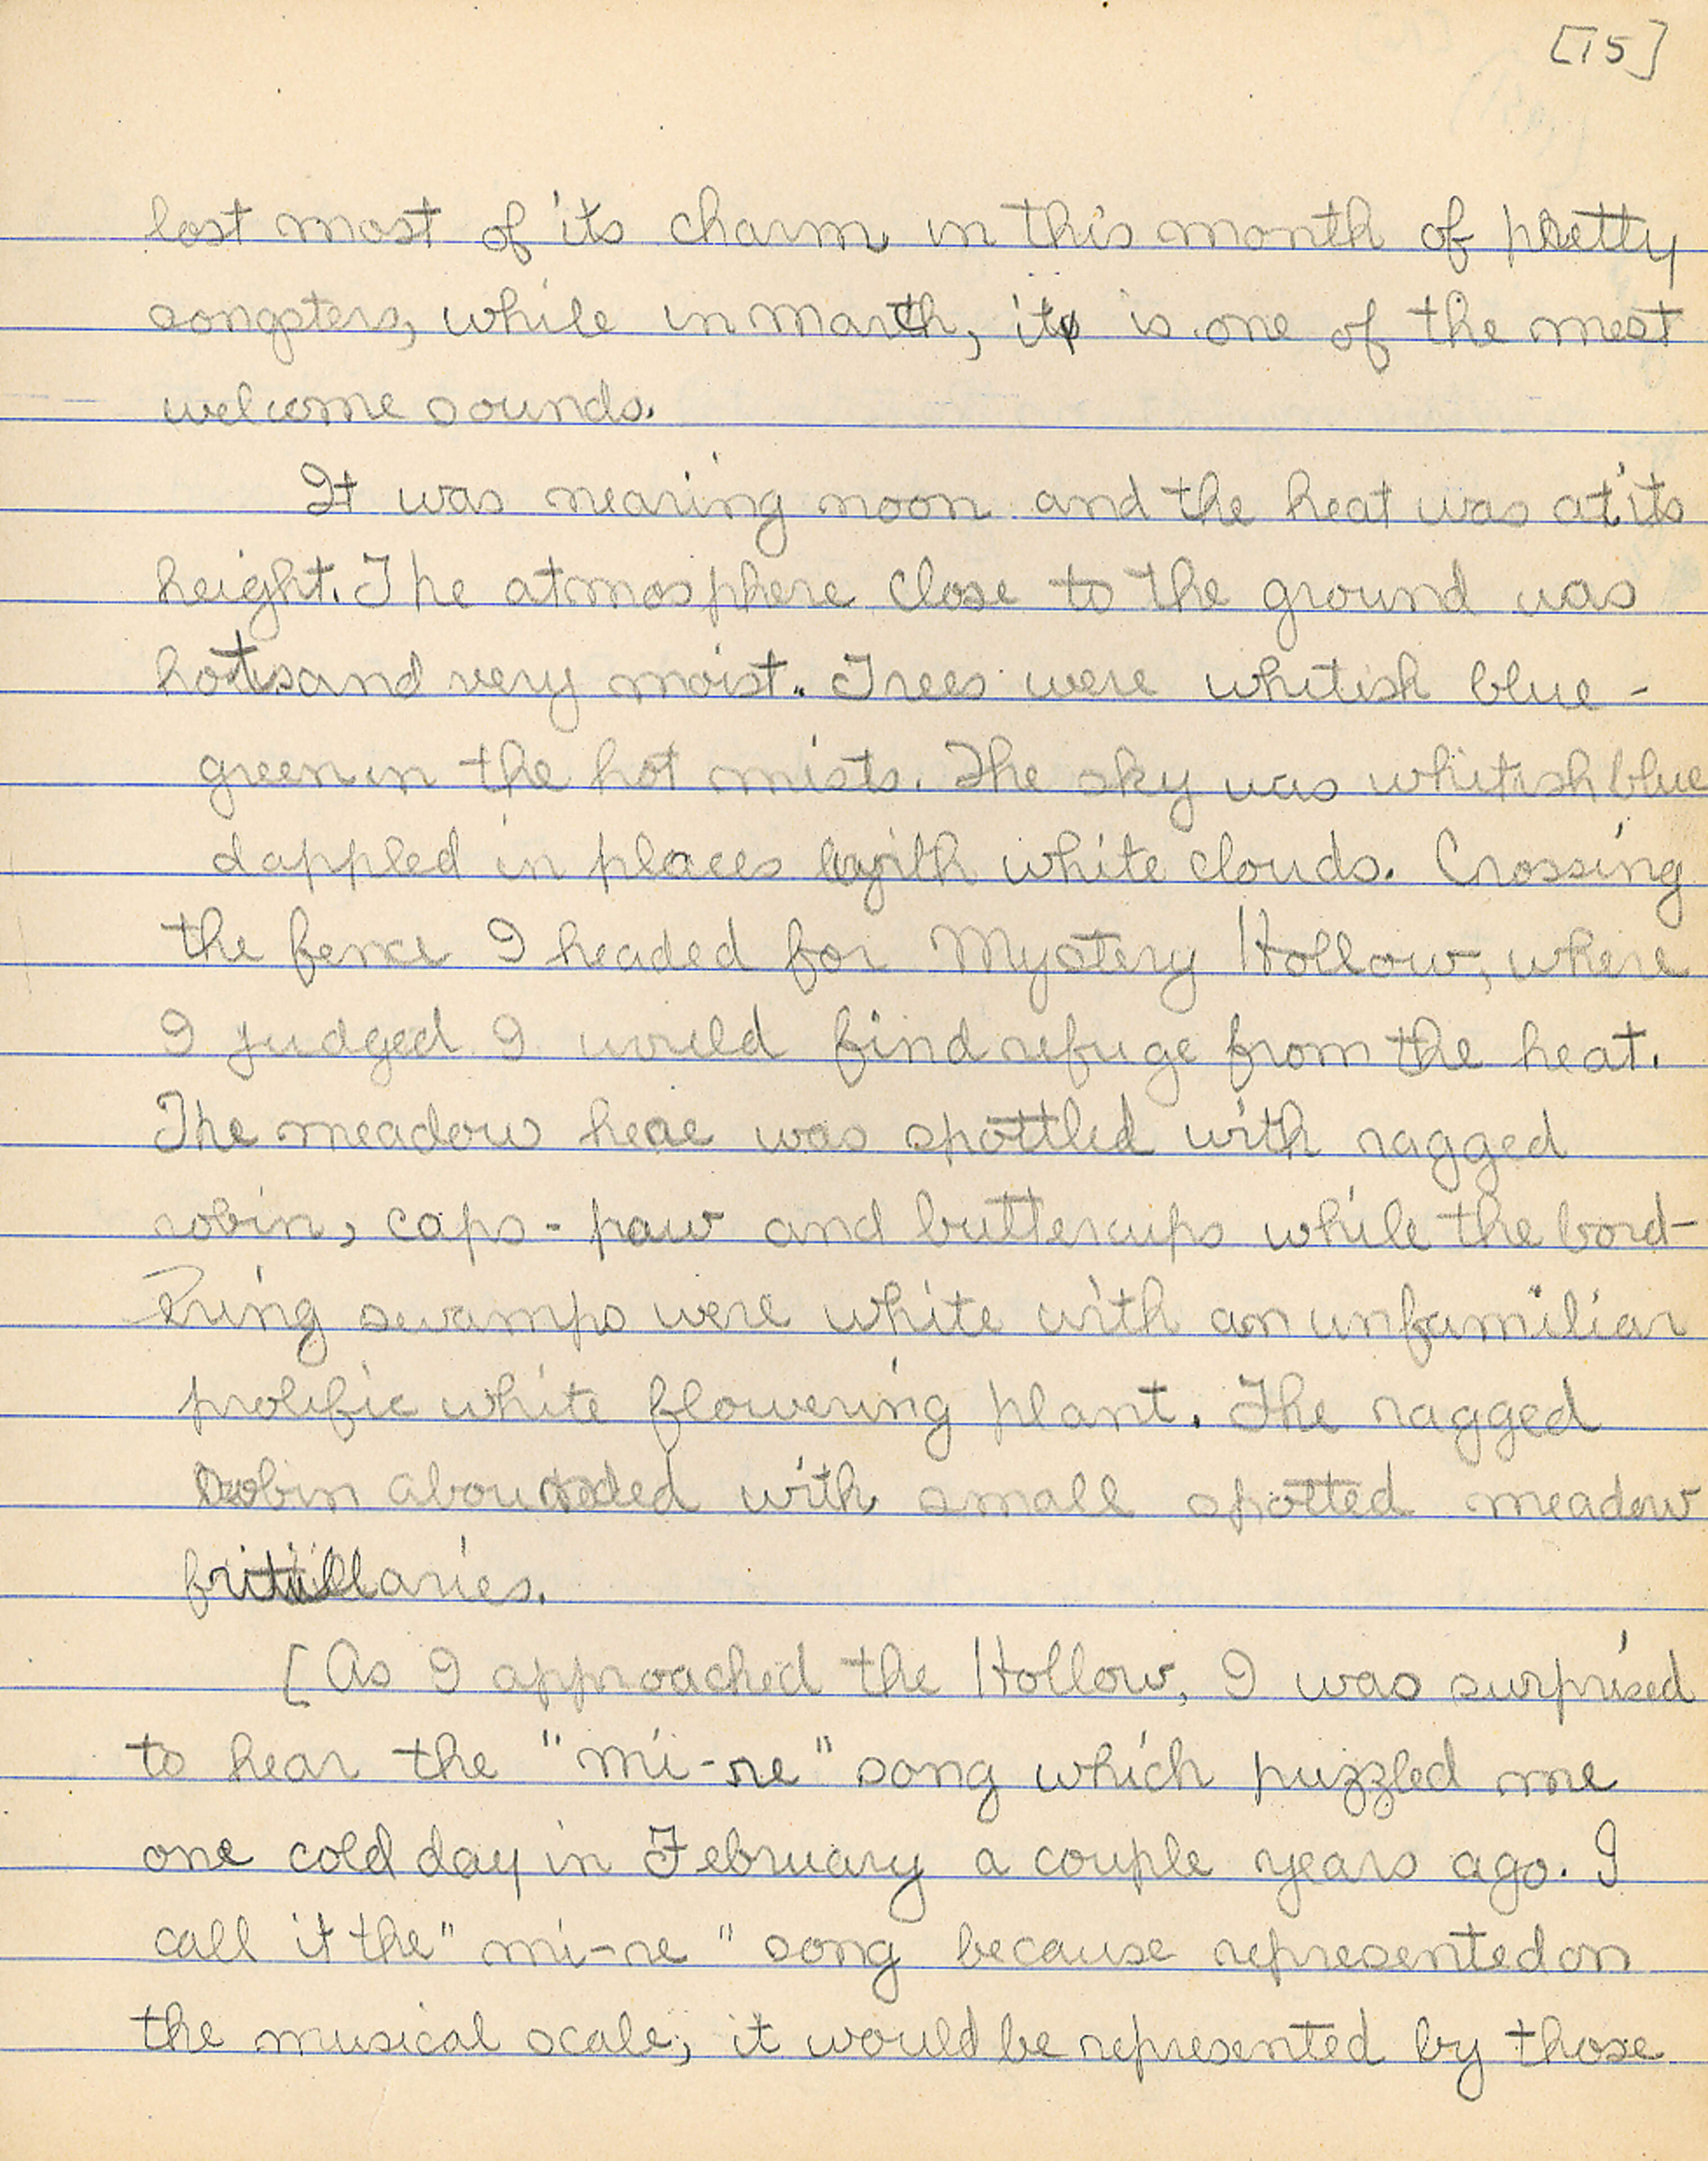 [15]
lost most of its charm in this month of pretty
songsters, while in March, it is one of the most
welcome sounds.
It was nearing noon and the heat was at its
height. The atmosphere close to the ground was
hot and very moist. Trees were whitish blue-
green in the hot mists. The sky was whitish blue
dappled in places with white clouds. Crossing
the fence I headed for Mystery Hollow, where
I judged I would find refuge from the heat.
The meadow here was spottled with ragged
robin, caps-paw and buttercups while the bord-
ering swamps were white with an unfamiliar
prolific white flowering plant. The ragged
robin abounded with small spotted meadow
fritillaries.
[As I approached the Hollow, I was surprised
to hear the "mi-re" song which puzzled me
one cold day in February a couple years ago. I
call it the "mi-re" song because represented on
the musical scale, it would be represented by those